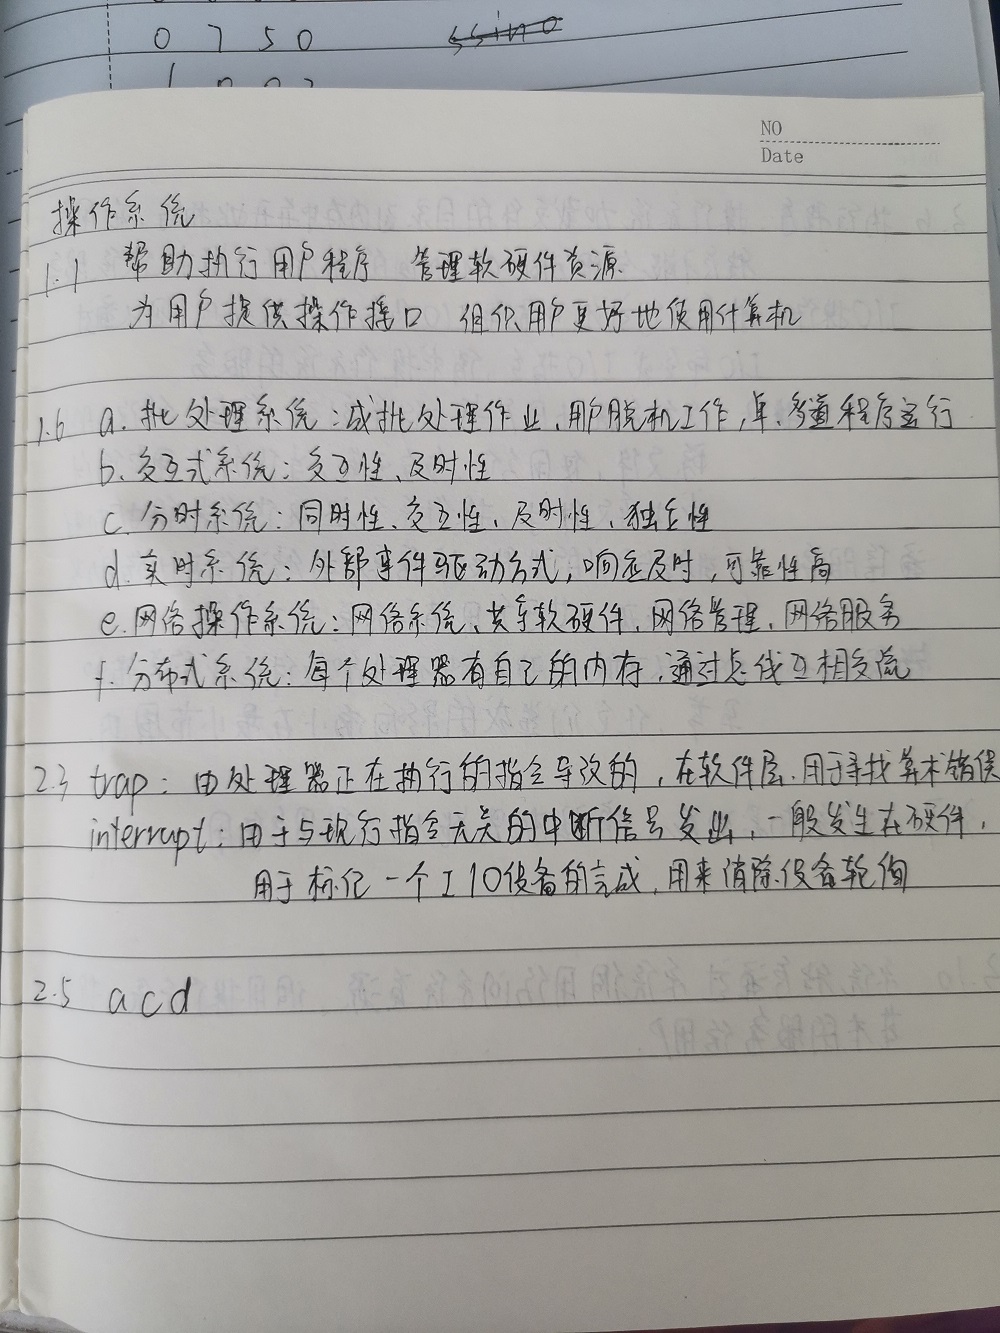 0 7 5 0
NO
Date
操作系统
1.1 帮助执行用户程序 管理软硬件资源
为用户提供操作接口 组织用户更好地使用计算机
1.6 a. 批处理系统：成批处理作业、用户脱机工作，单、多道程序运行
b. 交互式系统：交互性、及时性
c. 分时系统：同时性、交互性、及时性、独立性
d. 实时系统：外部事件驱动方式，响应及时，可靠性高
e. 网络操作系统：网络系统、共享软硬件、网络管理、网络服务
f. 分布式系统：每个处理器有自己的内存，通过总线互相交流
2.3 trap：由处理器正在执行的指令导致的，在软件层、用于寻找算术错误
interrupt：由于与现行指令无关的中断信号发出，一般发生在硬件，
用于标记一个I/O设备的完成，用来消除设备轮询
2.5 acd